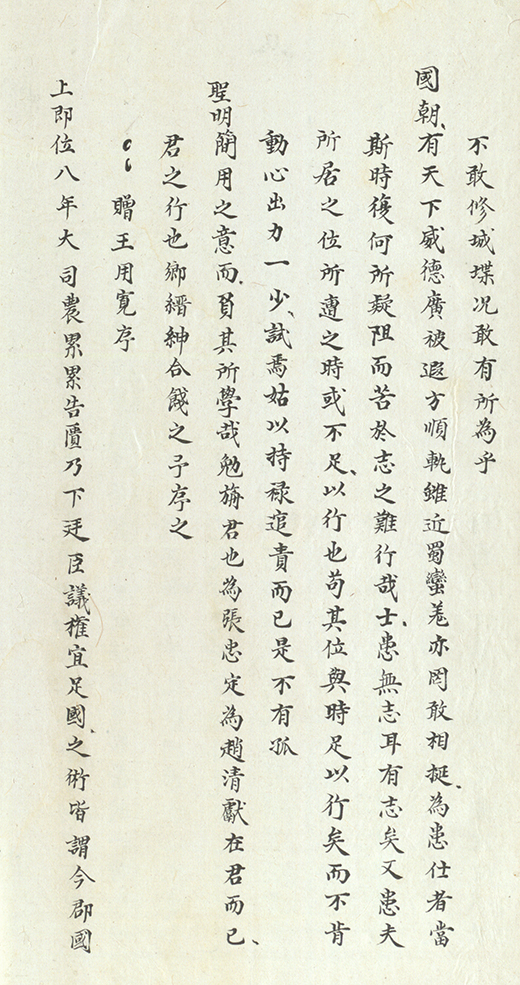 不敢修城堞况敢有所為乎
國朝、有天下威德廣被遐方順軌雖近蜀蠻羌亦罔敢相挻、為患仕者當
斯時復何所疑阻而苦於志之難行哉士、患無志耳有志矣又患夫
所居之位所遭之時或不足、以行也苟其位與時足以行矣而不肯
動心出力一少、試焉姑以持禄追貴而已是不有孤
聖明簡用之意而、負其所學哉勉旃君也為張忠定為趙清獻在君而已、
君之行也鄉縉紳合餞之予序之
贈王用寬序
上即位八年大司農累累告匱乃下廷臣議權宜足國、之術皆謂今郡國